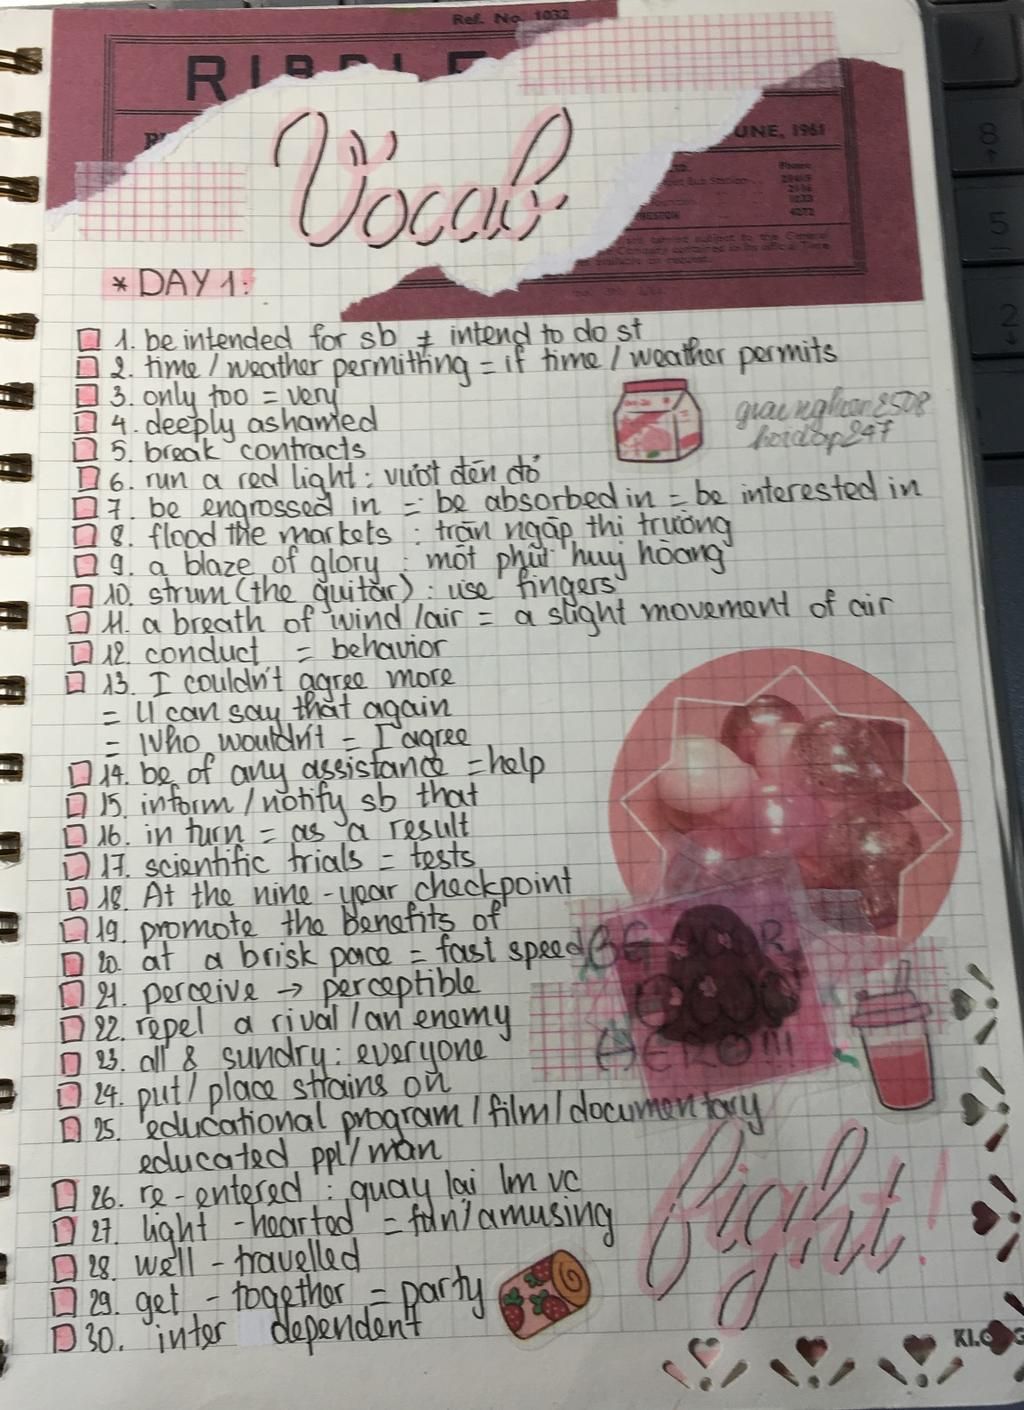 Ref. No. 1032
Vocab
UNE, 1961
* DAY 1:
1. be intended for sb ≠ intend to do st
2. time / weather permitting = if time / weather permits
3. only too = very
4. deeply ashamed
5. break contracts
6. run a red light : vượt đèn đỏ
7. be engrossed in = be absorbed in = be interested in
8. flood the markets : tràn ngập thị trường
9. a blaze of glory : một phút huy hoàng
10. strum (the guitar) : use fingers
11. a breath of wind /air = a slight movement of air
12. conduct = behavior
13. I couldn't agree more
= U can say that again
= Who wouldn't = I agree
14. be of any assistance = help
15. inform / notify sb that
16. in turn = as a result
17. scientific trials = tests
18. At the nine-year checkpoint
19. promote the benefits of
20. at a brisk pace = fast speed
21. perceive → perceptible
22. repel a rival / an enemy
23. all & sundry : everyone
24. put / place strains on
25. educational program / film / documentary
educated ppl / man
26. re-entered : quay lại lm vc
27. light - hearted = fun / amusing
28. well - travelled
29. get - together = party
30. inter dependent
HERO!!!
fight!